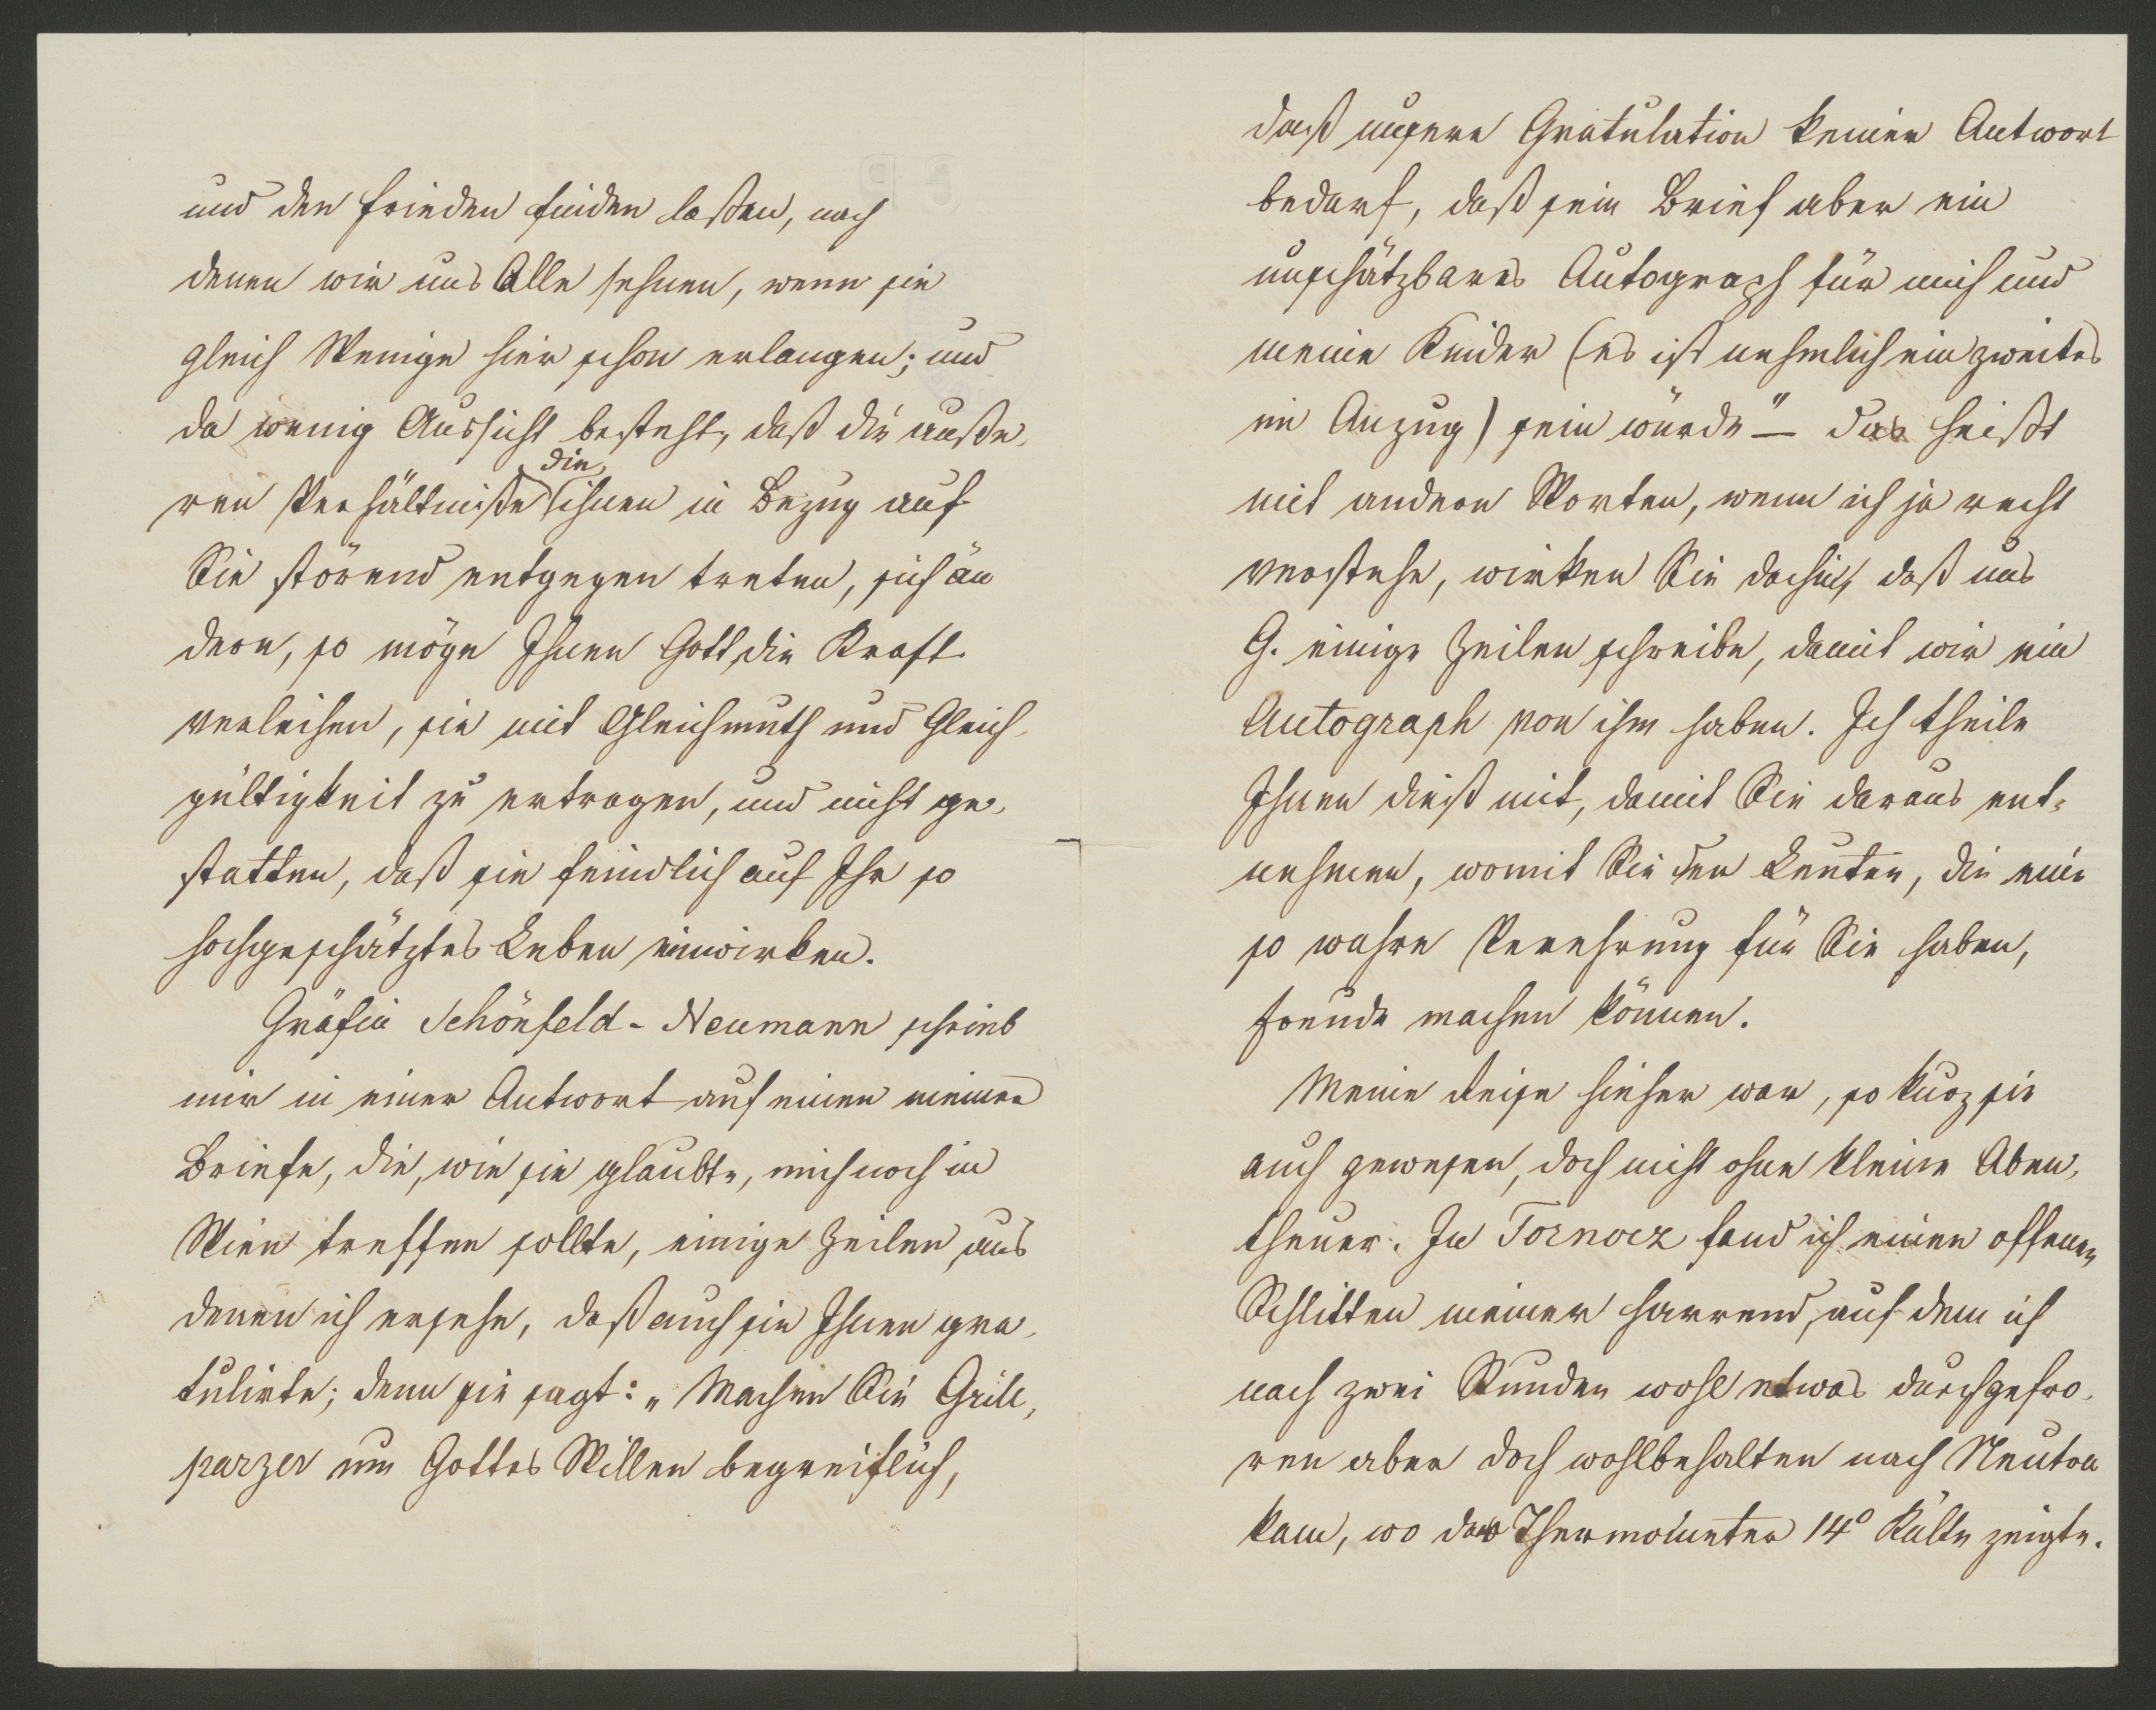 und den Frieden finden laßen, nach
denen wir uns Alle sehnen, wenn sie
gleich Wenige hier schon erlangen; und
da wenig Aussicht besteht, daß die äuße-
ren Verhältniße die ihnen in Bezug auf
Sie störend entgegen treten, sich än
dern, so möge Ihnen Gott die Kraft
verleihen, sie mit Gleichmuth und Gleich-
gültigkeit zu ertragen, und nicht ge-
statten, daß sie feindlich auf Ihr so
hochgeschätztes Leben einwirken.
Gräfin Schönfeld-Neumann schrieb
mir in einer Antwort auf einen meiner
Briefe, die, wie sie glaubte, mich noch in
Wien treffen sollte, einige Zeilen, aus
denen ich ersehe, daß auch sie Ihnen gra-
tulirte; denn sie sagt: „Machen Sie Grill-
parzer um Gottes Willen begreiflich,
daß unsere Gratulation keiner Antwort
bedarf, daß sein Brief aber ein
unschätzbares Autograph für mich und
meine Kinder (es ist nehmlich ein zweites
im Anzug) sein würde" – das heißt
mit andern Worten, wenn ich ja recht
verstehe, wirken Sie dahin, daß uns
G. einige Zeilen schreibe, damit wir ein
Autograph von ihm haben. Ich theile
Ihnen dieß mit, damit Sie daraus ent-
nehmen, womit Sie den Leuten, die eine
so wahre Verehrung für Sie haben,
Freude machen können.
Meine Reise hieher war, so kurz sie
auch gewesen, doch nicht ohne kleine Aben-
theuer. In Tornocz fand ich einen offenen
Schlitten meiner harrend, auf dem ich
nach zwei Stunden wohl etwas durchgefro-
ren aber doch wohlbehalten nach Neutra
kam, wo das Thermometer 14° Kälte zeigte.